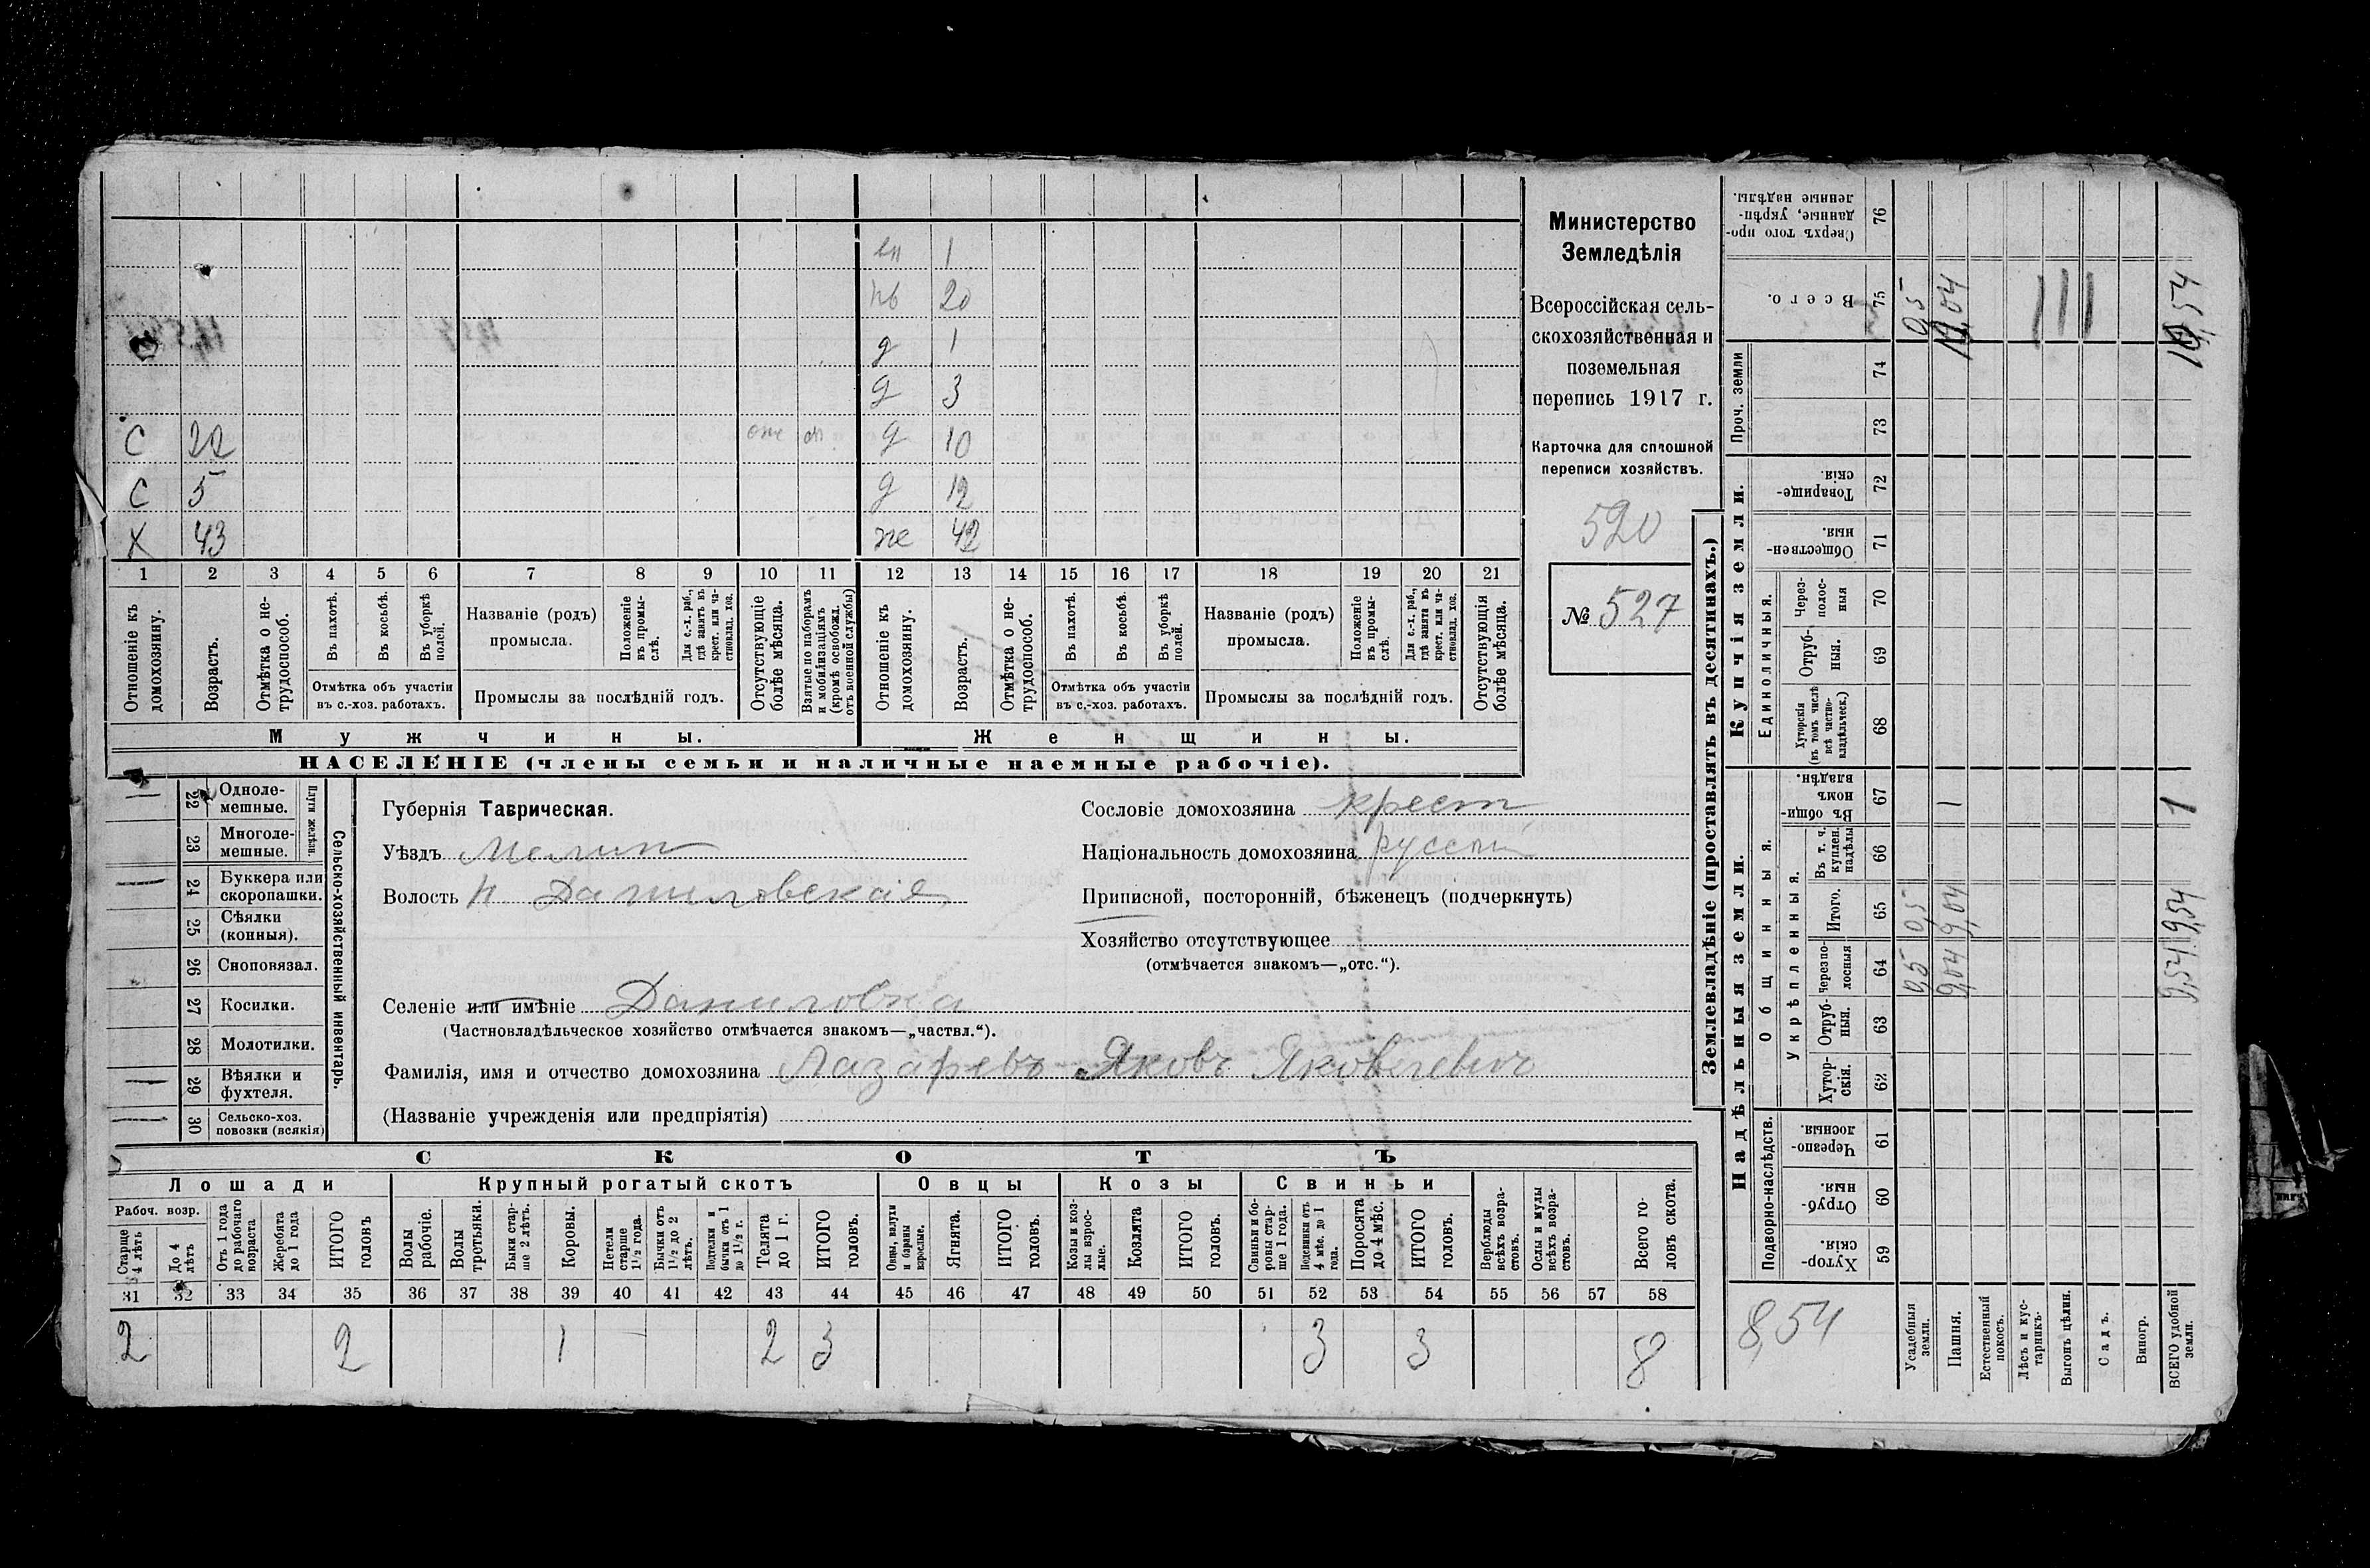 Министерство
Земледѣлія
Всероссійская сель-
скохозяйственная и
поземельная
перепись 1917 г.
Карточка для сплошной
переписи хозяйствъ.
520
№ 527
1
20
д 1
д 3
С 22 д 10
С 5 д 12
Х 43 же 42
1 2 3 4 5 6 7 8 9 10 11 12 13 14 15 16 17 18 19 20 21
Отношеніе къ домохозяину.
Возрастъ.
Отмѣтка о не-трудоспособ.
Въ пахотѣ.
Въ косьбѣ.
Въ уборкѣ полей.
Отмѣтка объ участіи
въ с.-хоз. работахъ.
Названіе (родъ)
промысла.
Положеніе въ промы-слѣ.
Для с.-х. раб., гдѣ занятъ въ крест. или ча-стновлад. хоз.
Промыслы за послѣдній годъ.
Отсутствующіе болѣе мѣсяца.
Взятые по наборамъ и мобилизаціямъ (кромѣ освобожд. отъ военной службы)
Отношеніе къ домохозяину.
Возрастъ.
Отмѣтка о не-трудоспособ.
Въ пахотѣ.
Въ косьбѣ.
Въ уборкѣ полей.
Отмѣтка объ участіи
въ с.-хоз. работахъ.
Названіе (родъ)
промысла.
Положеніе въ промы-слѣ.
Для с.-х. раб., гдѣ занята въ крест. или ча-стновлад. хоз.
Промыслы за послѣдній годъ.
Отсутствующія болѣе мѣсяца.
Мужчины. Женщины.
НАСЕЛЕНІЕ (члены семьи и наличные наемные рабочіе).
22 Одноле-мешные.
23 Многоле-мешные.
Плуги желѣзн.
24 Буккера или скоропашки.
25 Сѣялки (конныя).
26 Сноповязал.
27 Косилки.
28 Молотилки.
29 Вѣялки и фухтеля.
30 Сельско-хоз. повозки (всякія)
Сельско-хозяйственный инвентарь.
Губернія Таврическая.
Уѣздъ Мелит
Волость Н Даниловская
Селеніе или имѣніе Даниловка
(Частновладѣльческое хозяйство отмѣчается знакомъ—„частвл.“).
Фамилія, имя и отчество домохозяина Лазаревъ Яковъ Яковлевич
(Названіе учрежденія или предпріятія)
Сословіе домохозяина крест
Національность домохозяина русск
Приписной, посторонній, бѣженецъ (подчеркнуть)
Хозяйство отсутствующее
(отмѣчается знакомъ—„отс.“).
СКОТЪ
Лошади Крупный рогатый скотъ Овцы Козы Свиньи
Рабоч. возр.
Старше 4 лѣтъ
До 4 лѣтъ
Отъ 1 года до рабочаго возраста
Жеребята до 1 года
ИТОГО головъ
Волы рабочіе.
Волы третьяки.
Быки стар-ше 2 лѣтъ.
Коровы.
Нетели старше 1½ года.
Бычки отъ 1½ до 2 лѣтъ.
Подтелки и бычки отъ 1 до 1½ г.
Телята до 1 г.
ИТОГО головъ.
Овцы, валухи и бараны взрослые.
Ягнята.
ИТОГО головъ.
Козы и коз-лы взрос-лые.
Козлята
ИТОГО головъ.
Свиньи и бо-ровы стар-ше 1 года.
Подсвинки отъ 4 мѣс. до 1 года.
Поросята до 4 мѣс.
ИТОГО головъ.
Верблюды всѣхъ возра-стовъ.
Ослы и мулы всѣхъ возра-стовъ.
Всего го-ловъ скота.
31 32 33 34 35 36 37 38 39 40 41 42 43 44 45 46 47 48 49 50 51 52 53 54 55 56 57 58
2 2 1 2 3 3 3 8
Землевладѣніе (проставлять въ десятинахъ.)
Купчія земли.
Надѣльныя земли.
Сверхъ того про-данные, укрѣп-ленные надѣлы. 76
Всего. 75 0,5
Проч. земли 74 73
Товарище-скія 72
Обществен-ныя. 71
Единоличныя.
Через-полос-ныя 70
Отруб-ныя. 69
Хуторскія (въ томъ числѣ всѣ частно-владѣльческ.) 68
Общинныя.
Въ общи-номъ владѣн. 67 1 1
Укрѣпленныя.
Въ т. ч. куплен. надѣлы 66
Итого. 65 0,5 9,04 9,54
черезпо-лосныя 64 0,5 9,04 9,54
Отруб-ныя. 63
Хутор-скія. 62
Подворно-наслѣдств.
Черезпо-лосныя 61
Отруб-ныя. 60
Хутор-скія. 59
8,54
Усадебныя земли.
Пашня.
Естественный покосъ.
Лѣсъ и кус-тарникъ.
Выгонъ цѣлин.
Садъ.
Виногр.
ВСЕГО удобной земли.